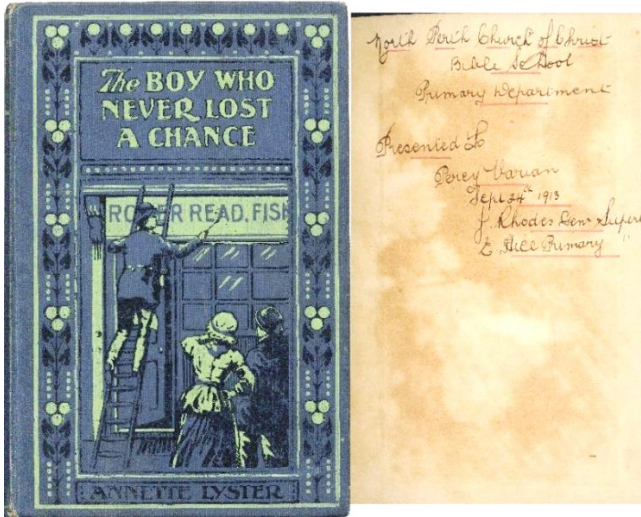 The BOY WHO
NEVER LOST
A CHANCE
ROGER READ, FISH
ANNETTE LYSTER
North Perth Church of Christ
Bible School
Primary Department
Presented to
Percy Varian
Sept 24th 1913
J. Rhodes Gen Super
E Hill Primary